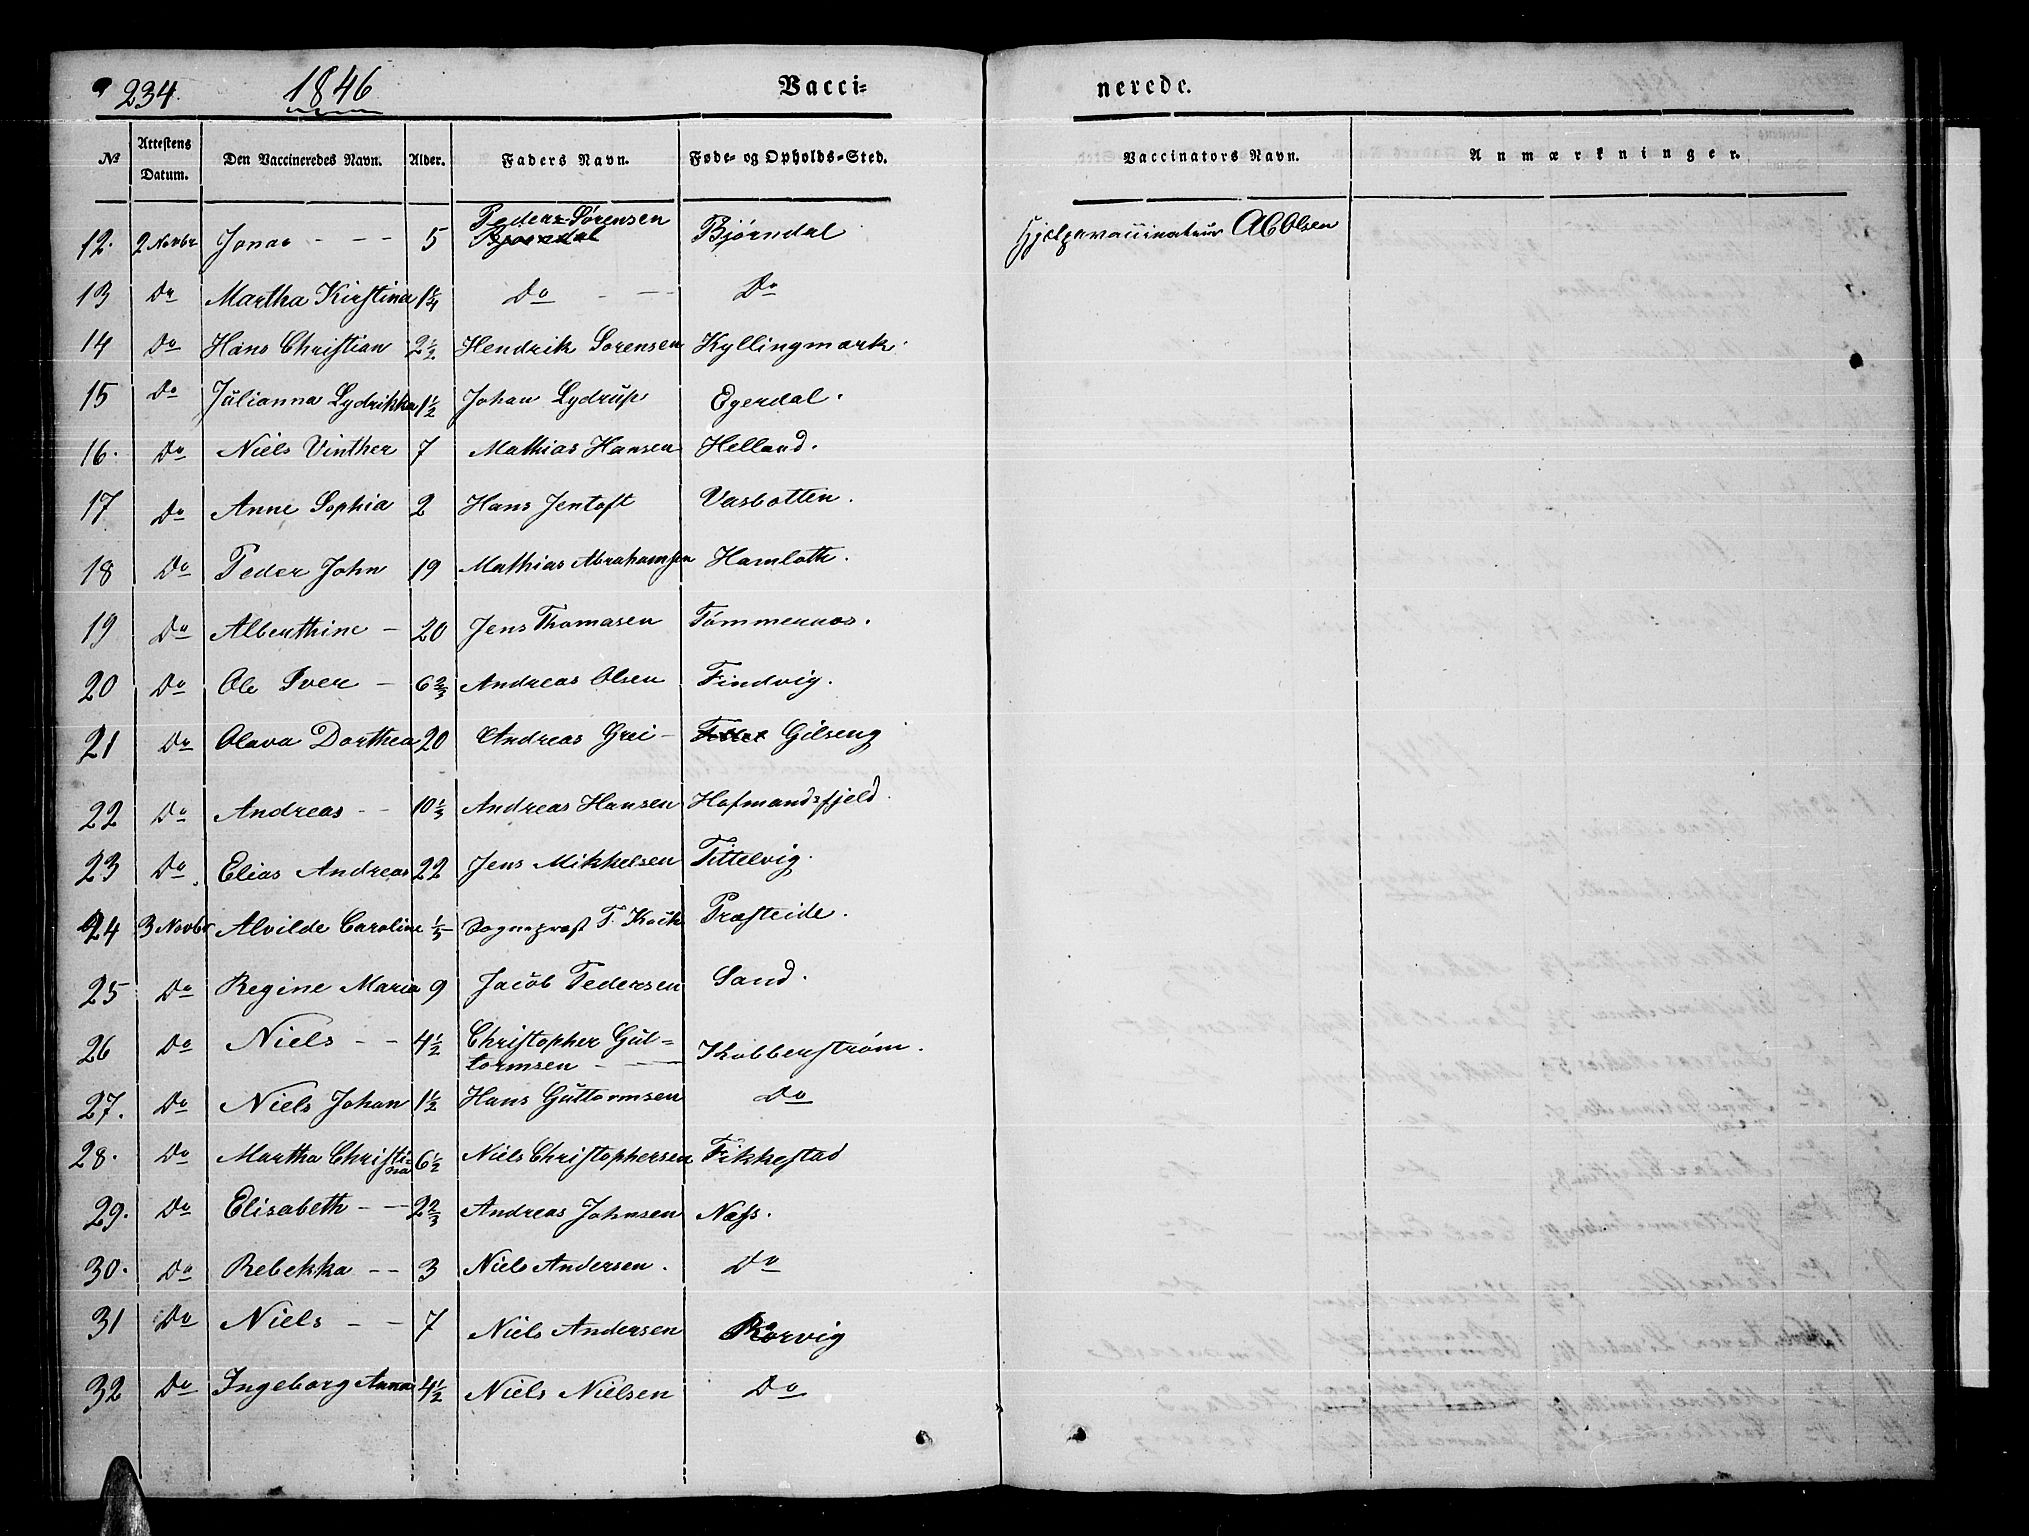 234. 1846 Vacci= nerede.
№ Attestens Datum. Den Vaccineredes Navn. Alder. Faders Navn. Føde- og Opholds-Sted. Vaccinators Navn. Anmærkninger.
12. 2 Novbr Jonas - - - 5 Peder Sørensen Bjørndal Bjørndal Hjelpevaccinateur Olsen
13 Do Martha Kirstina 1¼ Do - - Do
14 Do Hans Christian 2½ Hendrik Sørensen Kyllingmark.
15 Do Julianna Lydrikka 1½ Johan Lydrup Egerdal.
16. Do Niels Vinther 7 Mathias Hansen Helland.
17 Do Anne Sophia 2 Hans Jentoft Vasbotten.
18 Do Peder John 19 Mathias Abrahamsen Hamloth.
19 Do Alberthine - 20 Jens Thomasen Tømmernæs.
20 Do Ole Iver - 6⅔ Andreas Olsen Findvig.
21 Do Olava Dorthea 20 Andreas Grei - Gilseng
22 Do Andreas - - 10⅓ Andreas Hansen Hofmandsfjeld.
23 Do Elias Andreas 22 Jens Mikkelsen Tittelvig.
24 3 Novbr Alvilde Caroline ⅕ Sognepræst T. Koch Præsteide.
25 Do Regine Maria 9 Jacob Pedersen Sand.
26 Do Niels - - 4½ Christopher Gut=
tormsen - - Kobberstrøm.
27. Do Niels Johan 1½ Hans Guttormsen Do
28. Do Martha Christi-
na 6½ Niels Christophersen Fikkestad
29. Do Elisabeth - - 2⅔ Andreas Johnsen Næss.
30. Do Rebekka - - 3 Niels Andersen. Do
31 Do Niels - - 7 Niels Andersen Rørvig
32 Do Ingeborg Anna 4½ Niels Nielsen Do